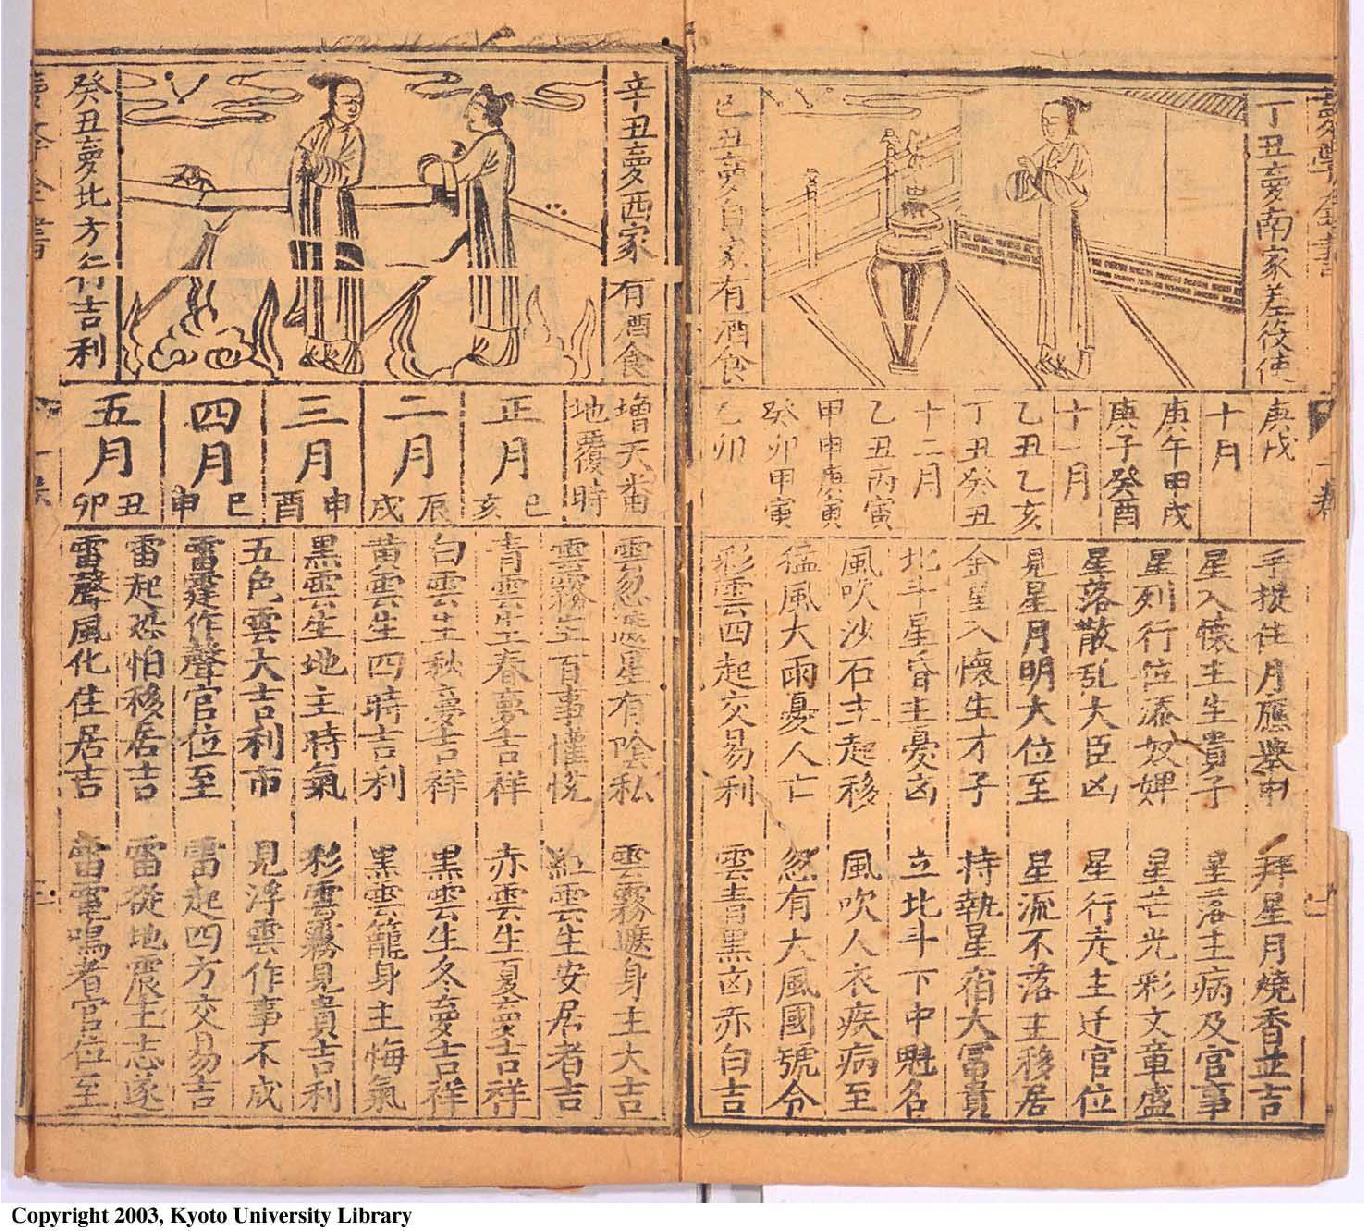 丁丑夢南家差役使
己丑夢自家有酒食
庚戌
十月
庚午甲戌
庚子癸酉
十一月
乙丑乙亥
丁丑癸丑
十二月
乙丑丙寅
甲申庚寅
癸卯甲寅
乙卯
手捉住月應舉中
拜星月燒香並吉
星入懷主生貴子
星落主病及官事
星列行位添奴婢
星芒光彩文章盛
星落散乱大臣凶
星行走主迁官位
見星月明大位至
星流不落主移居
金星入懷生才子
持執星宿大冨貴
北斗星昏主憂凶
立北斗下中魁名
風吹沙石主起移
風吹人衣疾病至
猛風大雨憂人亡
忽有大風國號令
彩雲四起交易利
雲青黑凶赤白吉
辛丑夢西家有酒食
癸丑夢北方亡行吉利
增天番
地覆時
正月
巳亥
二月
辰戌
三月
申酉
四月
巳申
五月
丑卯
雲忽遮星有陰私
雲霧遮身主大吉
雲霧生百事懽悅
紅雲生安居者吉
青雲生春夢吉祥
赤雲生夏夢吉祥
白雲生秋夢吉祥
黑雲生冬夢吉祥
黃雲生四時吉利
黑雲籠身主悔氣
黑雲生地主時氣
彩雲霧見貴吉利
五色雲大吉利市
見浮雲作事不成
雷霆作聲官位至
雷起四方交易吉
雷起恐怕移居吉
雷從地震主志遂
雷聲風化住居吉
雷電鳴者官位至
Copyright 2003, Kyoto University Library